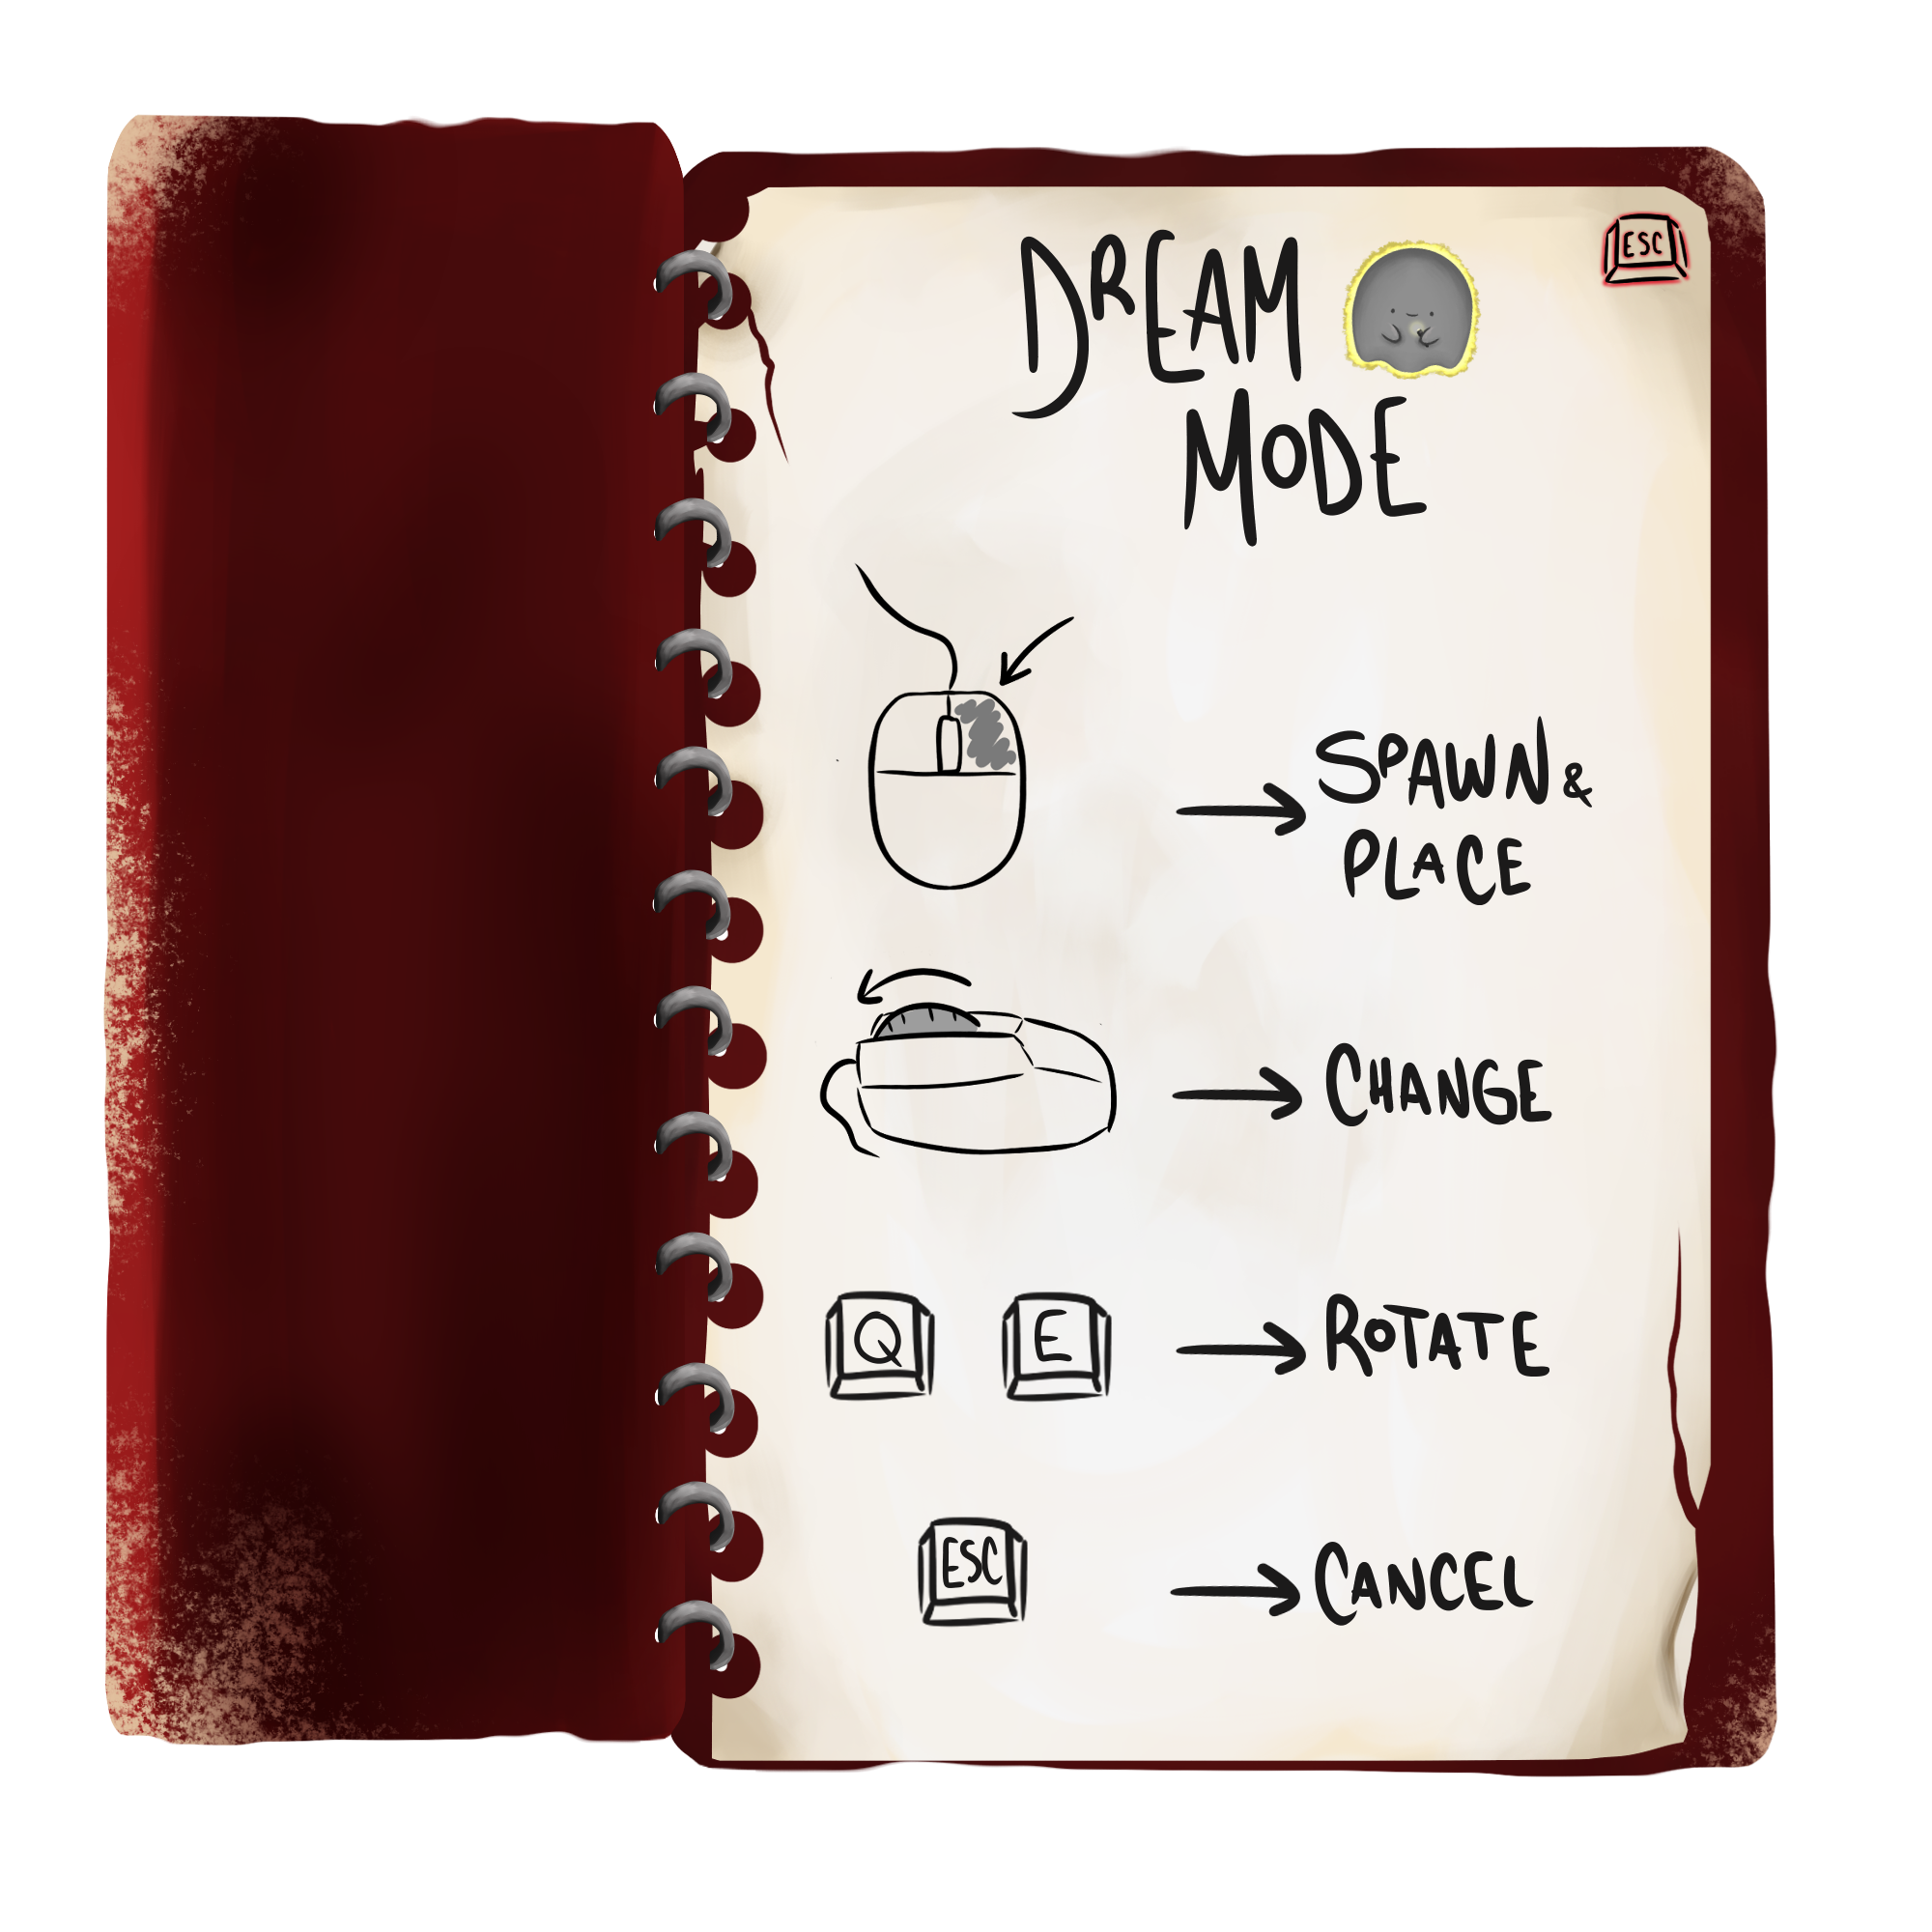 ESC
DREAM
MODE
SPAWN &
PLACE
CHANGE
Q E ROTATE
ESC CANCEL